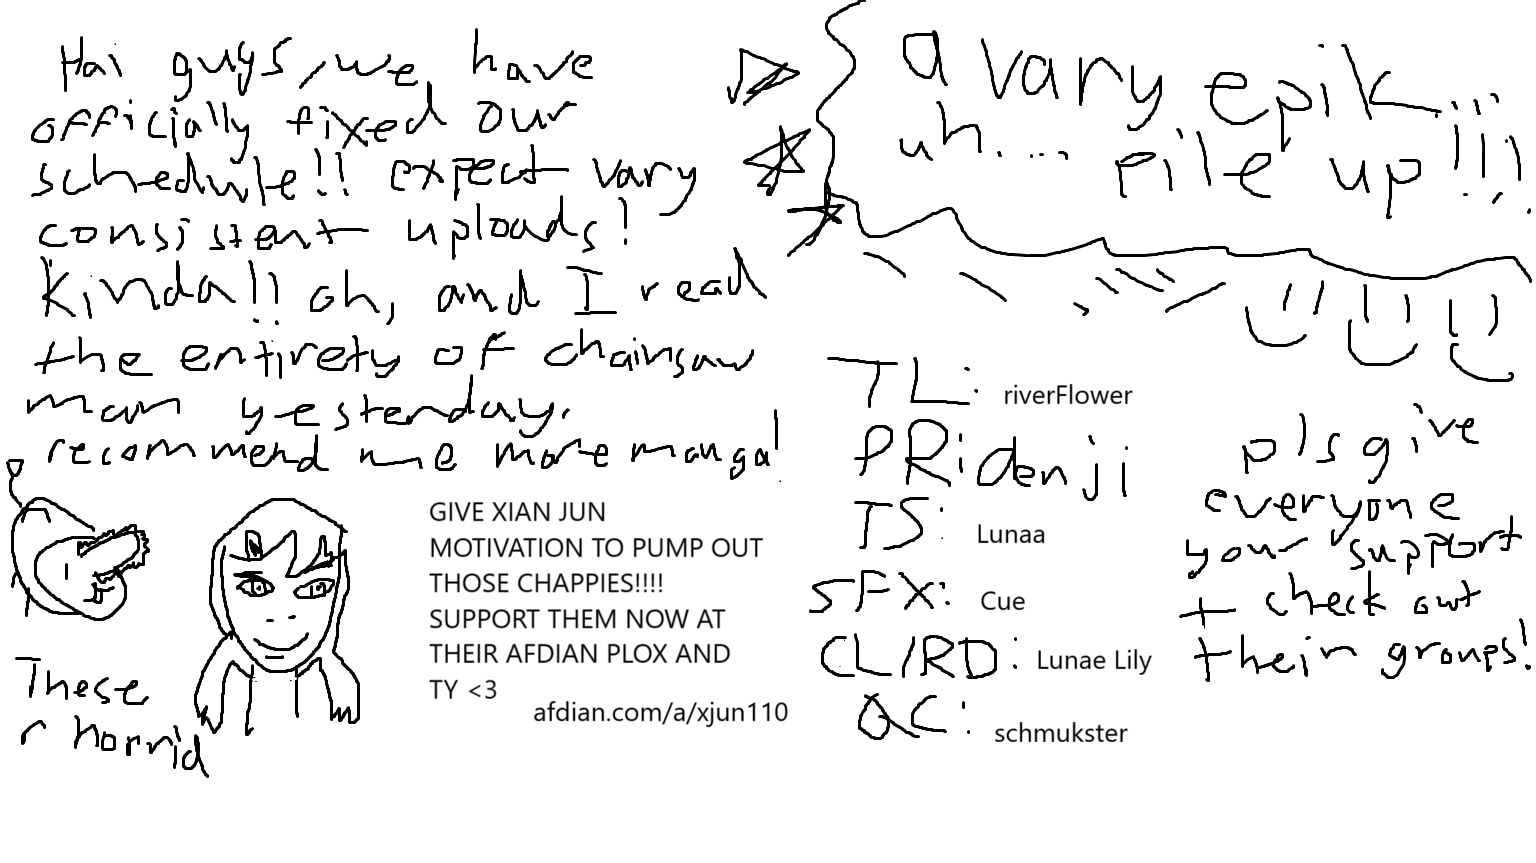 Hai guys, we have
officially fixed our
schedule!! expect vary
consistent uploads!
Kinda!! oh, and I read
the entirety of chainsaw
man yesterday.
recommend me more manga!
These
r horrid
GIVE XIAN JUN
MOTIVATION TO PUMP OUT
THOSE CHAPPIES!!!!
SUPPORT THEM NOW AT
THEIR AFDIAN PLOX AND
TY <3
afdian.com/a/xjun110
a vary epik...
uh.... pile up!!!!
TL: riverFlower
PR: denji
TS: Lunaa
SFX: Cue
CL/RD: Lunae Lily
QC: schmukster
pls give
everyone
your support
+ check out
their groups!